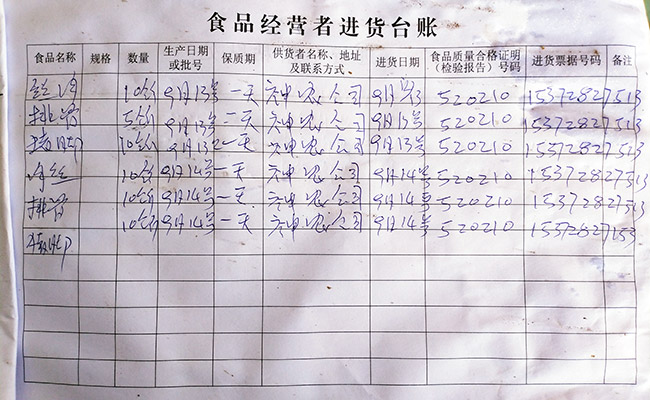 食品经营者进货台账
食品名称 规格 数量 生产日期或批号 保质期 供货者名称、地址及联系方式 进货日期 食品质量合格证明(检验报告)号码 进货票据号码 备注
10斤 9月13号 一天 神农公司 9月13 520210 15372827513
排骨 5斤 9月13号 一天 神农公司 9月13号 520210 15372827513
10斤 9月13号 一天 神农公司 9月13号 520210 15372827513
肉丝 10斤 9月14号 一天 神农公司 9月14号 520210 15372827513
排骨 10斤 9月14号 一天 神农公司 9月14号 520210 15372827513
10斤 9月14号 一天 神农公司 9月14号 520210 15372827153